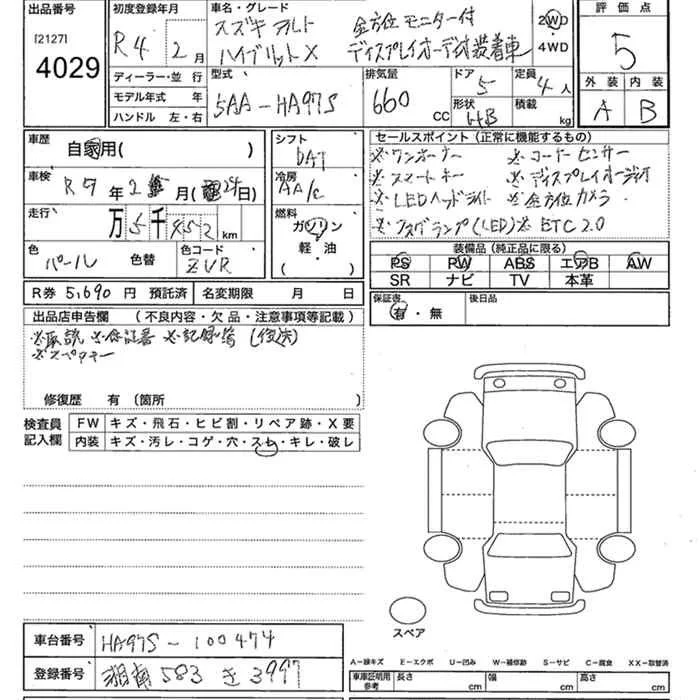 出品番号
[2127]
4029
初度登録年月
R4 2月
車名・グレード
スズキ アルト 全方位モニター付
ハイブリットX ディスプレイオーディオ装着車
2WD
・4WD
評価点
5
外装 内装
A B
ディーラー・並 行
モデル年式 年
ハンドル 左・右
型式
5AA-HA97S
排気量
660 cc
ドア
5
定員
4人
形状
HB
積載
kg
車歴
自家用( )
車検
R9年2月(24日)
走行
万5千452km
色
パール 色替
色コード
ZVR
シフト
DAT
冷房
AA/C
燃料
ガソリン
軽・油
( )
セールスポイント(正常に機能するもの)
※ワンオーナー ※コーナーセンサー
※スマートキー ※ディスプレイオーディオ
※LEDヘッドライト ※全方位カメラ
※フォグランプ(LED)※ETC2.0
装備品(純正品に限る)
PS PW ABS エアB AW
SR ナビ TV 本革
R券 5,690円 預託済 名変期限 月 日
保証書
有・無
後日品
出品店申告欄 (不良内容・欠品・注意事項等記載)
※取説 ※保証書 ※記録簿 (後送)
※スペアキー
修復歴 有 〔箇所 〕
検査員
記入欄
FW キズ・飛石・ヒビ割・リペア跡・X要
内装 キズ・汚レ・コゲ・穴・スレ・キレ・破レ
スペア
車台番号 HA97S-100474
登録番号 湘南 583 き 3997
A-線キズ E-エクボ U-凹み W-補修跡 S-サビ C-腐食 XX-取替済
車庫証明用
参考
長さ cm 幅 cm 高さ cm